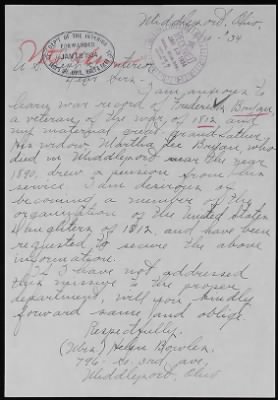 Middleport, Ohio,
DEPT OF THE INTERIOR
FORWARDED
JAN 12 '34
'34
U.S. Interior
Dear Sirs:-
I am anxious to
learn war record of Frederick Bryan,
a veteran of the war of 1812 and
my maternal great grandfather,
His widow Martha Lee Bryan, who
died in Middleport near the year
1890, drew a pension from his
service. I am desirous of
becoming a member of the
organization of the United States
Daughters of 1812, and have been
requested to secure the above
information.
If I have not addressed
this missive to the proper
department, will you kindly
forward same, and oblige.
Respectfully.
(Mrs.) Helen Bowles,
796 - So. 3rd ave,
Middleport, Ohio